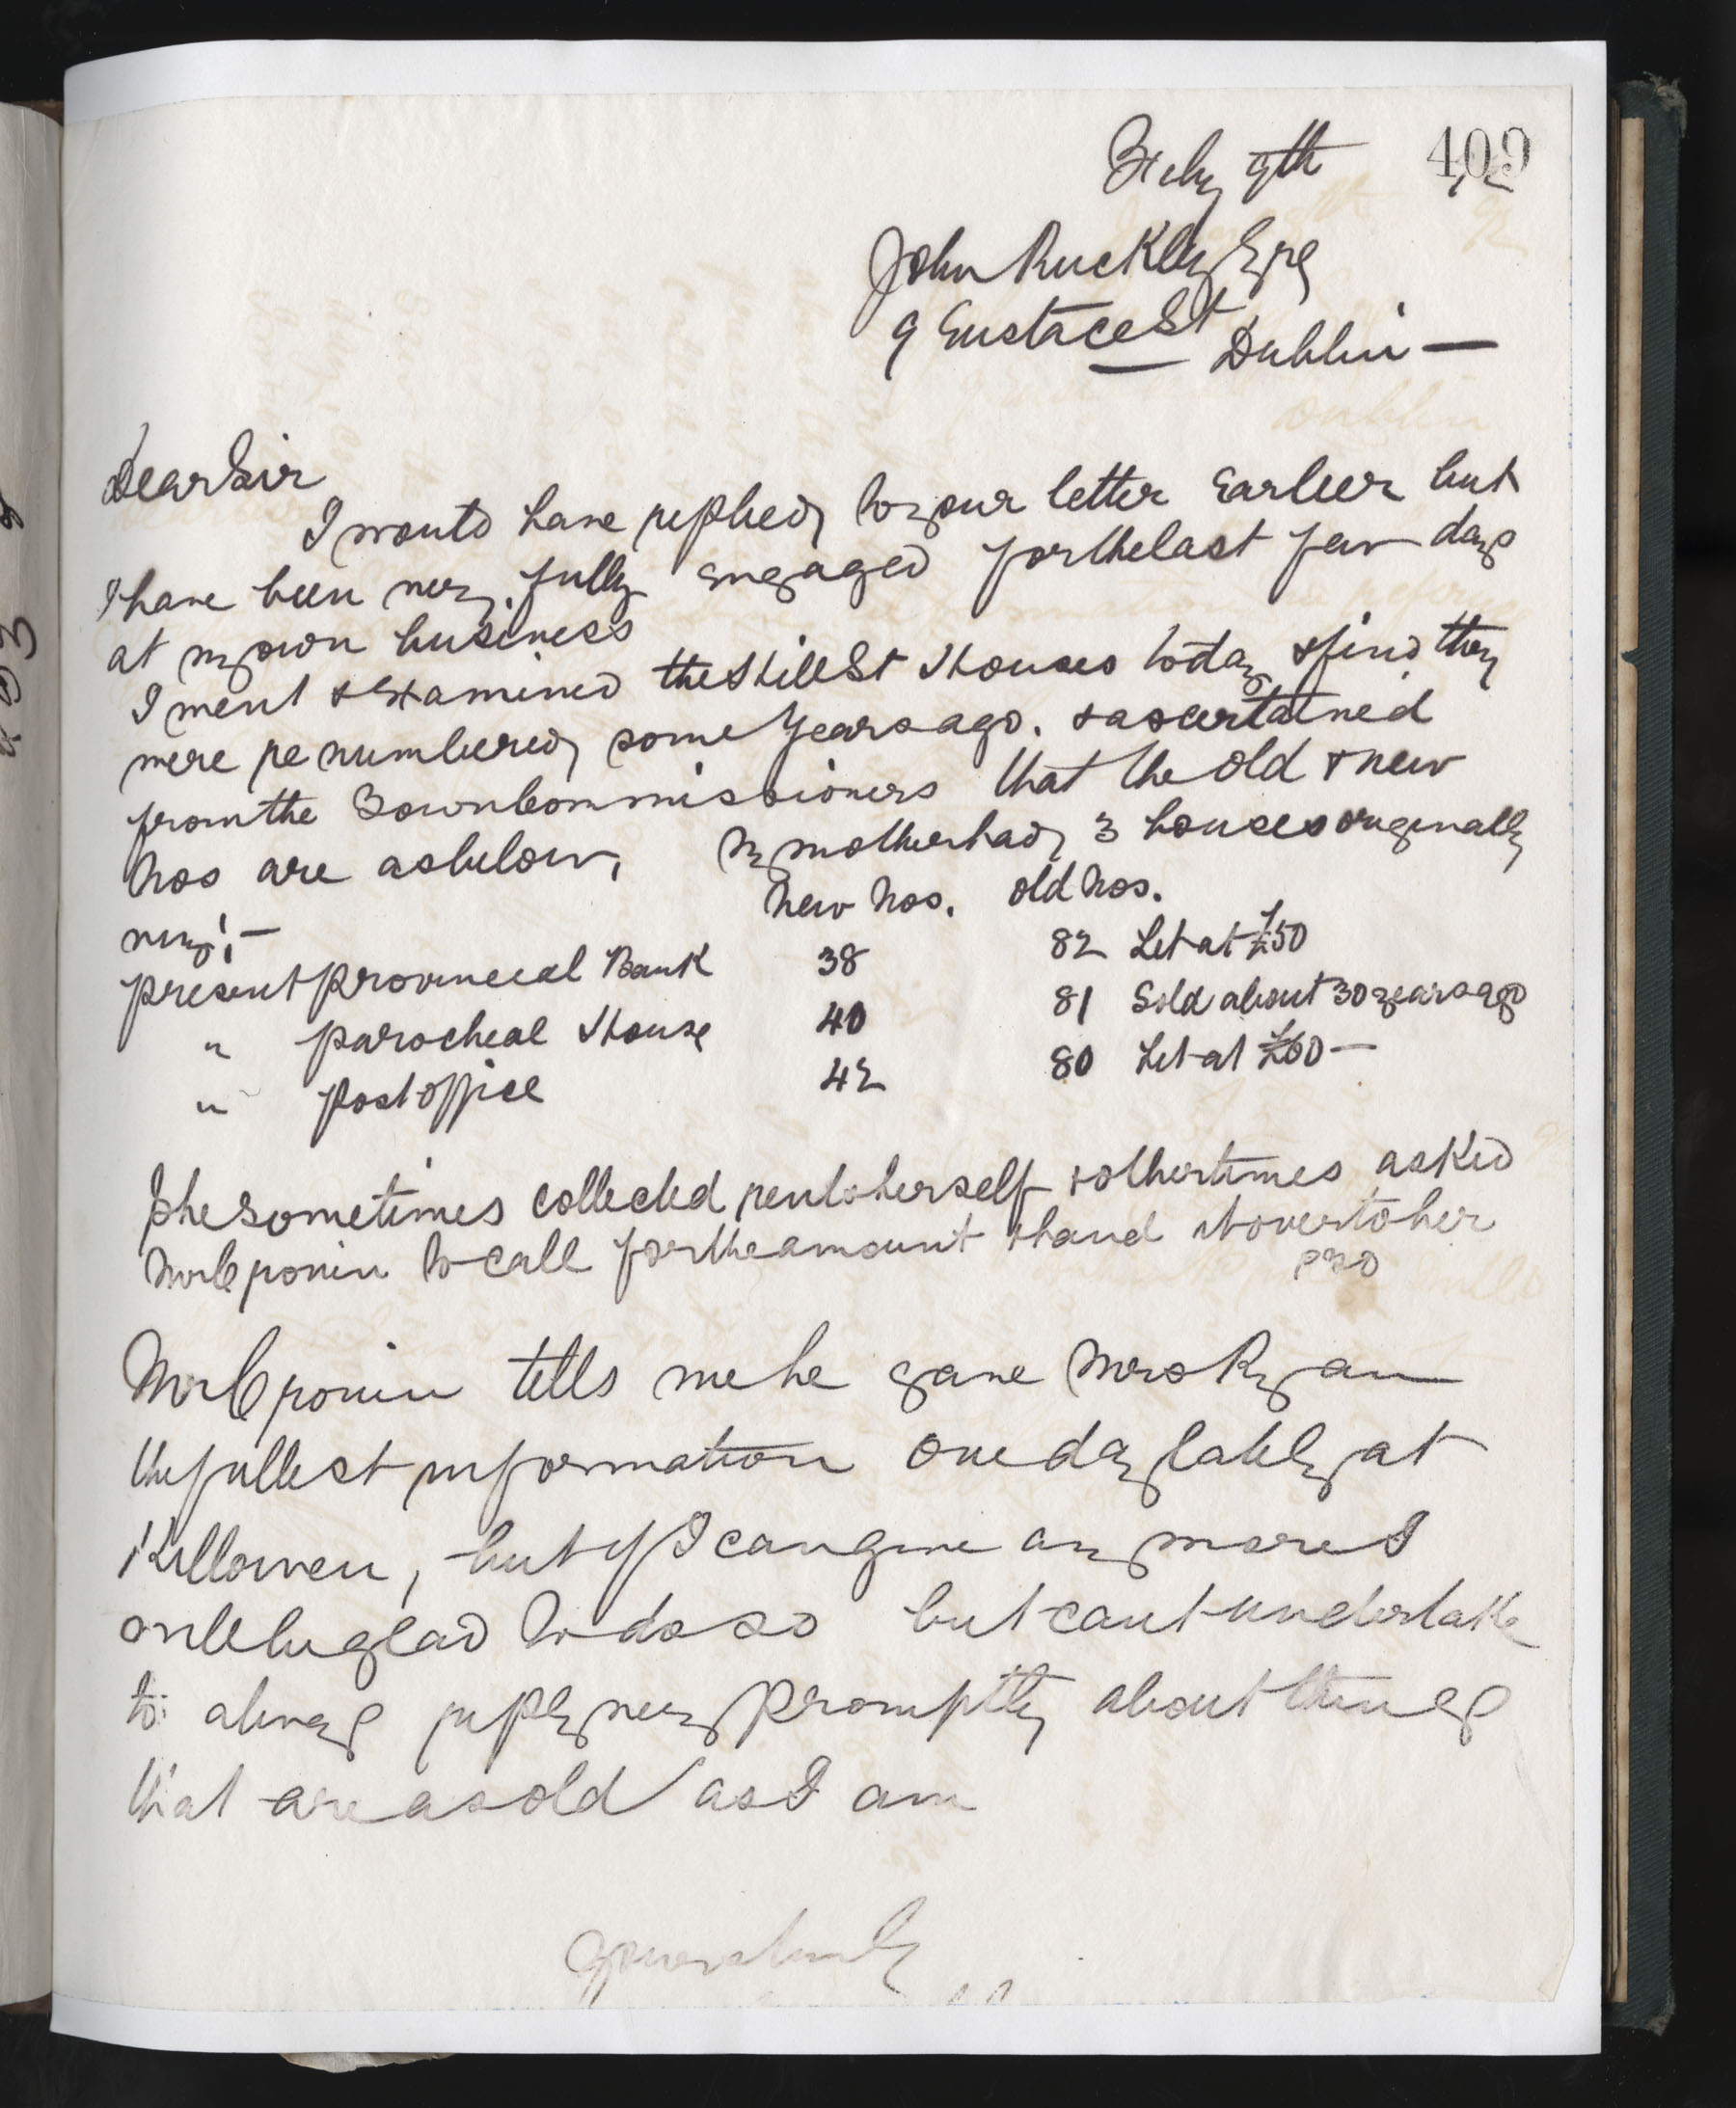 409
Feby 9th 12
John Buckley Esq
9 Eustace St Dublin
Dear Sir
I would have replied to your letter earlier but
I have been very fully engaged for the last few days
at my own business
I went & examined the Hill St Houses today & find they
were re numbered some years ago. & ascertained
from the Town Commissioners that the old & new
Nos are as below, My mother had 3 houses originally
New Nos. old Nos.
viz:-
present provincial Bank 38 82 Let at £50
" parochial House 40 81 Sold about 30 years ago
" post office 42 80 Let at £60
She sometimes collected rents herself & other times asked
Mr Cronin to call for the amount & hand it over to her
PTO
Mr Cronin tells me he gave Mrs Ryan
the fullest information one day lately at
Killowen, but if I can give any more I
will be glad to do so but cant undertake
to always reply very promptly about things
that are as old as I am
Yours truly